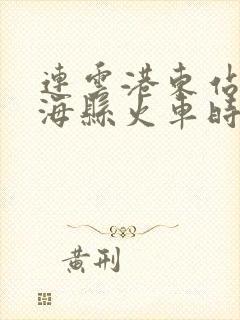 連雲港東佔
海縣火車時
黄刑